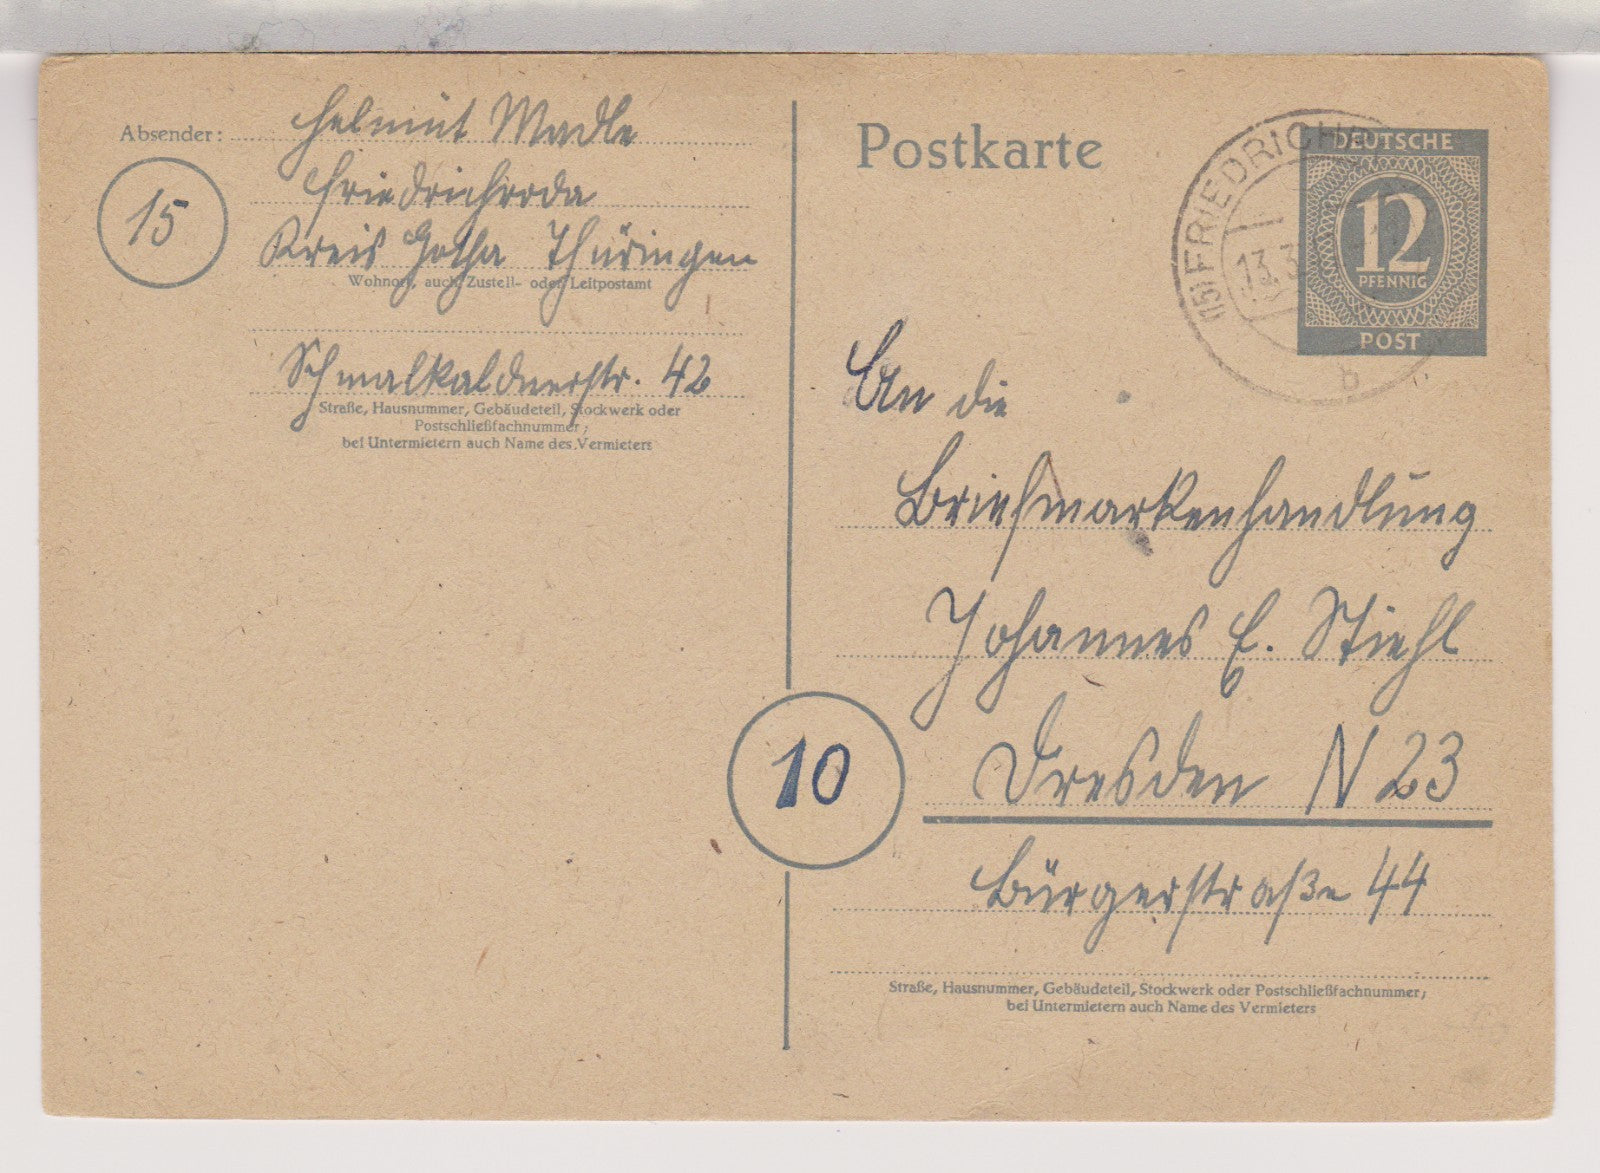 Absender: Helmut Madle
Friedrichroda
15
Kreis Gotha Thüringen
Wohnort, auch Zustell- oder Leitpostamt
Schmalkaldnerstr. 42
Straße, Hausnummer, Gebäudeteil, Stockwerk oder
Postschließfachnummer;
bei Untermietern auch Name des Vermieters
Postkarte
(15) FRIEDRICHR
13.3
b
DEUTSCHE
12
PFENNIG
POST
An die
Briefmarkenhandlung
Johannes E. Stiehl
10
Dresden N 23
Bürgerstraße 44
Straße, Hausnummer, Gebäudeteil, Stockwerk oder Postschließfachnummer;
bei Untermietern auch Name des Vermieters